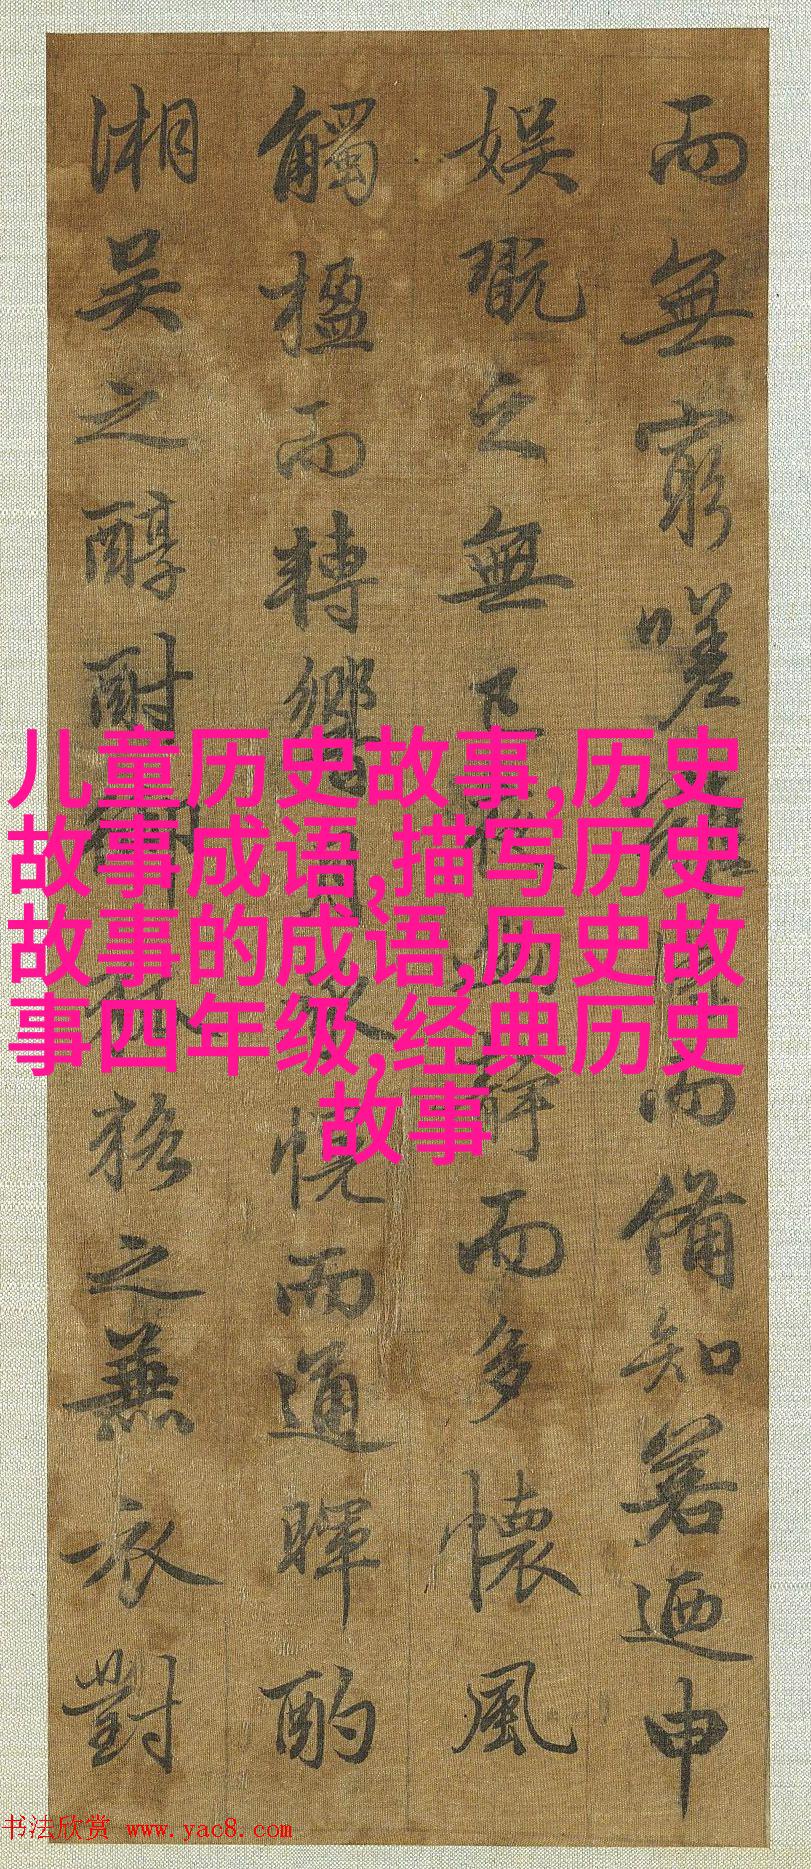 而無窮嗟而備知若迺申
娱翫之無已辭而多懷風
觸楹而轉響幌而通暉酌
湘吴之醇酎狢之兼衣對
儿童历史故事,历史
故事成语,描写历史
故事的成语,历史故
事四年级,经典历史
故事
书法欣赏 www.yac8.com